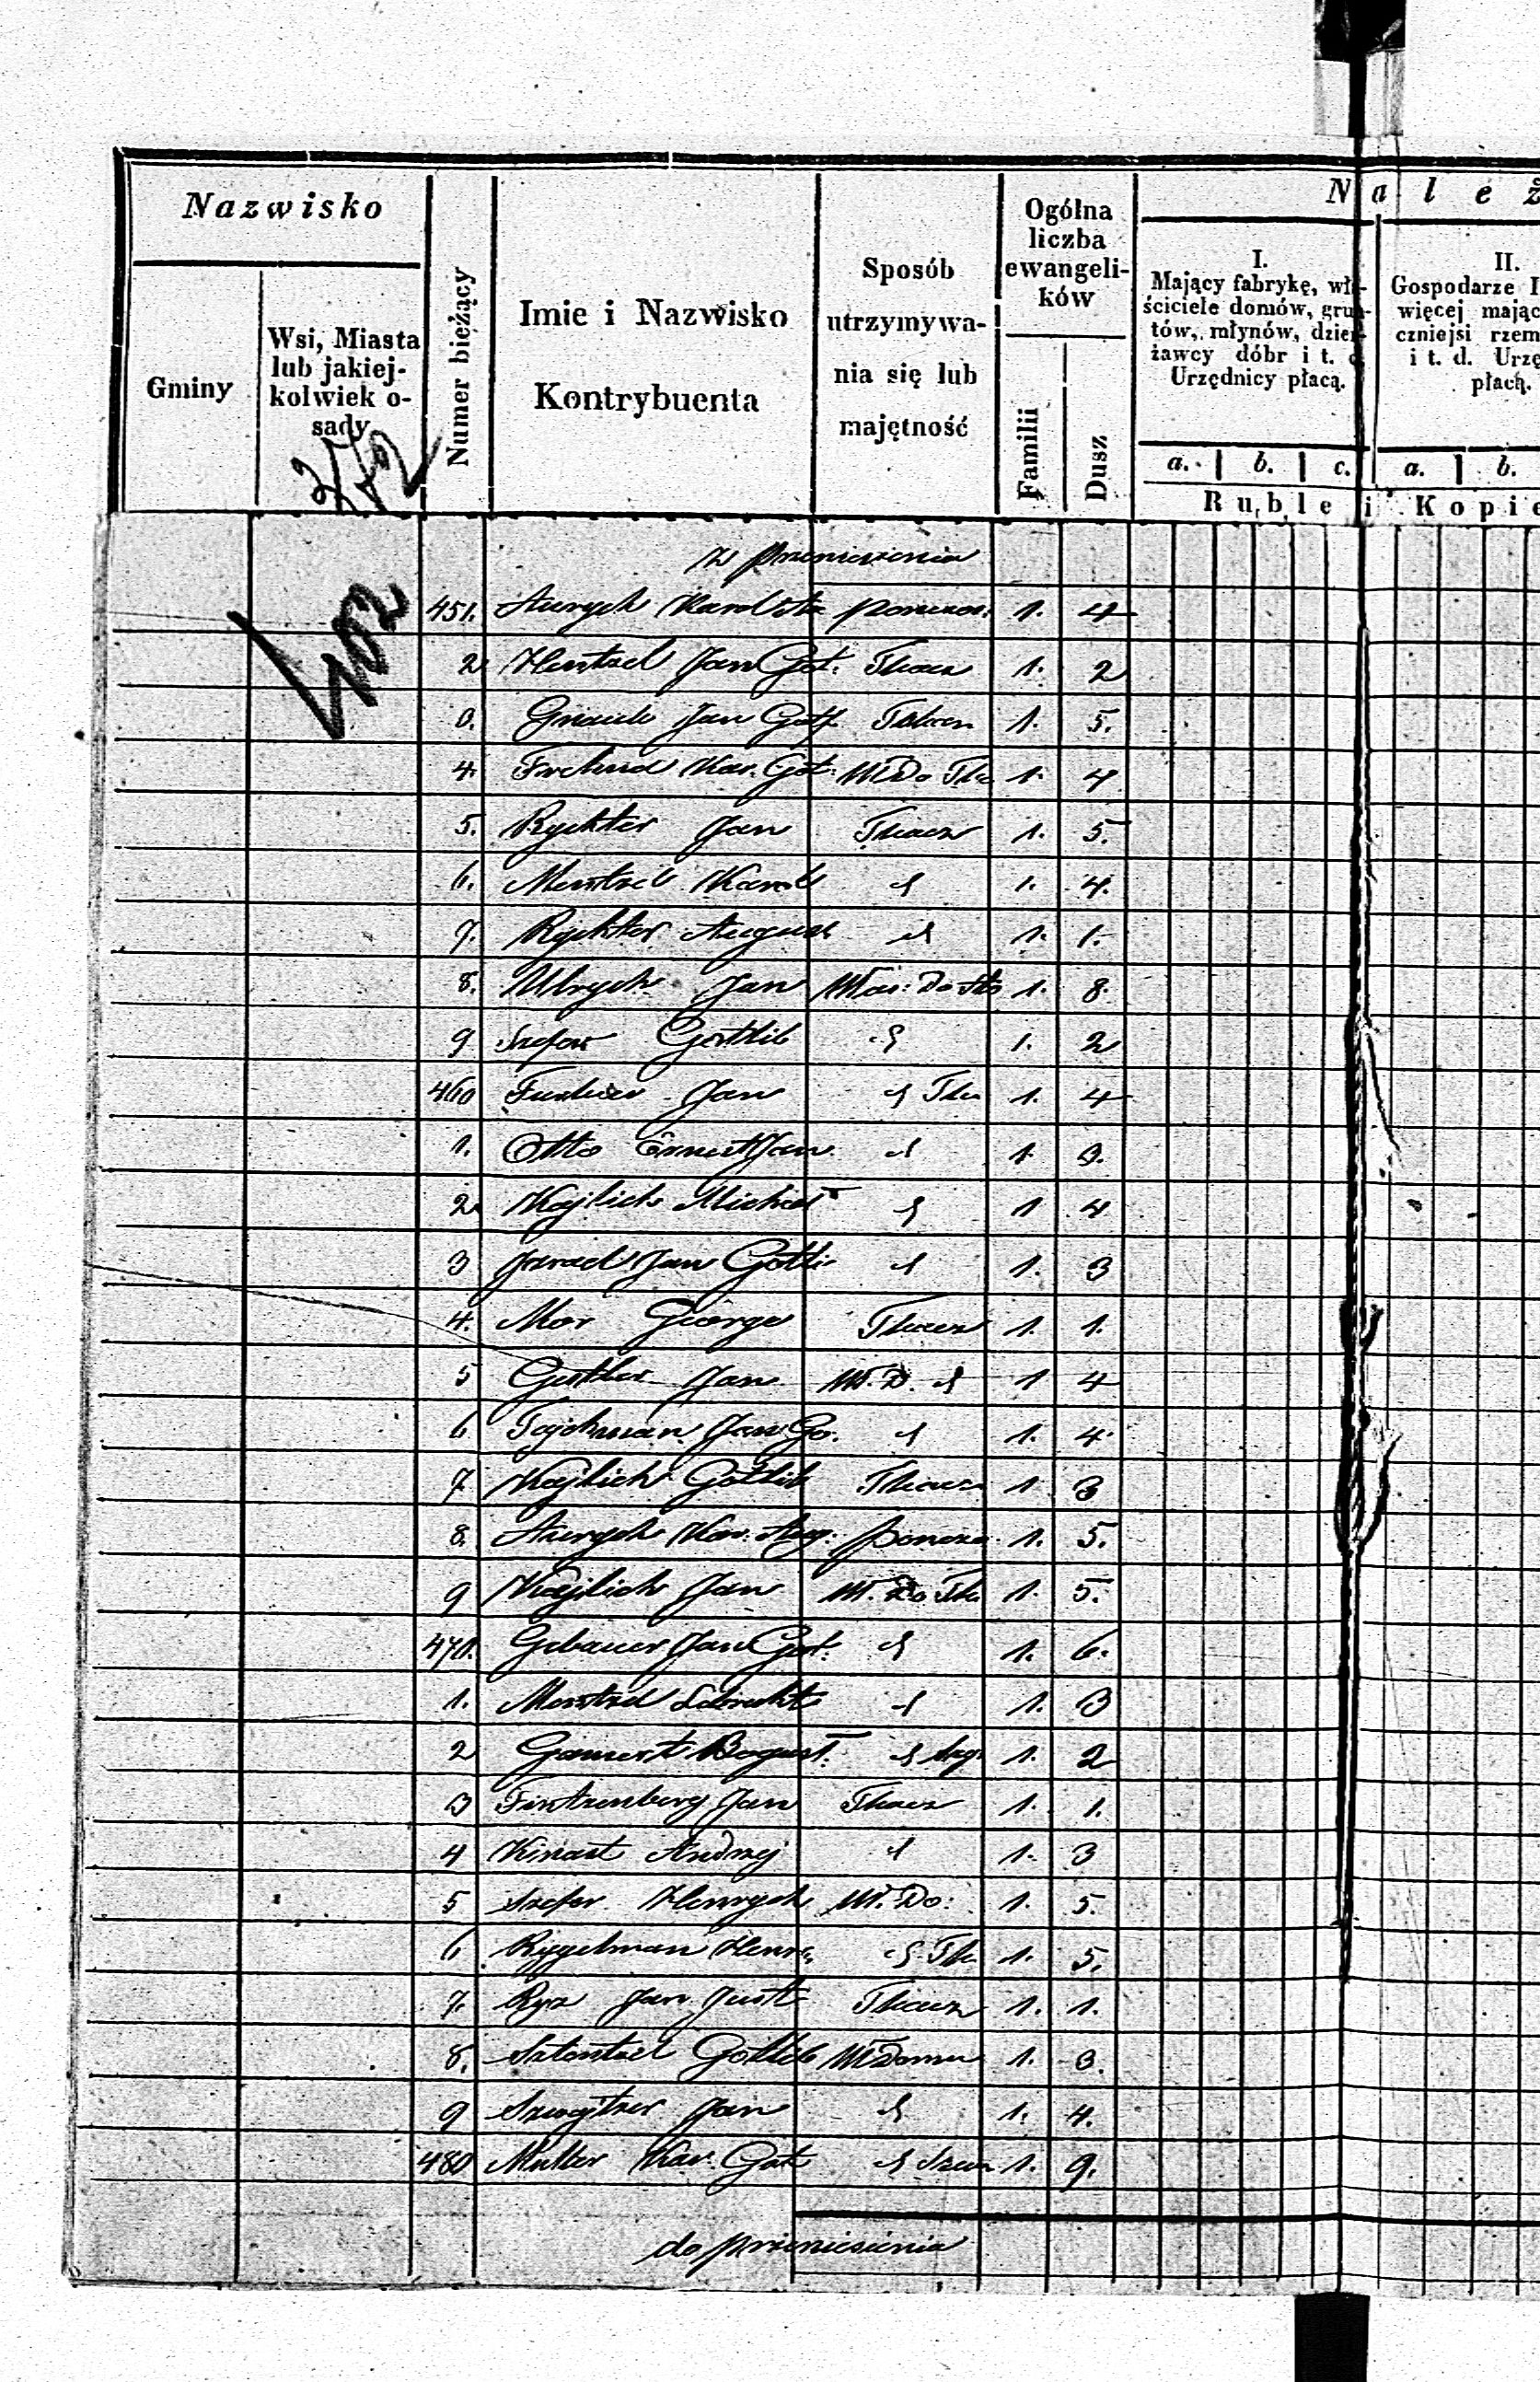 Nazwisko
Gminy
Wsi, Miasta lub jakiej-kolwiek o-sady
Numer bieżący
Imie i Nazwisko Kontrybuenta
Sposób utrzymywa-nia się lub majętność
Ogólna liczba ewangeli-ków
Familii
Dusz
N a l e ż
I. Mający fabrykę, wła-ściciele domów, grun-tów, młynów, dzier-żawcy dóbr i t. d. Urzędnicy płacą.
II. Gospodarze
więcej mając
czniejsi rzem
i t. d. Urzę
płacą.
a. b. c. a. b.
Ruble i Kopie
402
z przeniesienia
451. Aurych Karol 1. 4
2 Hentzel Jan Got: Tkacz 1. 2
Jan Gotf Tkacz 1. 5.
4. Kar. Got: Wł Do Tka 1. 4
5. Rychter Jan Tkacz 1. 5.
6. Mentzel Karol d 1. 4.
7. Rychter August d 1. 1.
8. Ulrych Jan Właś: Do Tka 1. 8.
9 Szefer Gottlib d 1. 2
460 Jan d Tka 1. 4
1. Otto Ernest Jan d 1. 3.
2 Kajlich Michał d 1 4
3 Jan Gotli d 1. 3
4. Mor George Tkacz 1. 1.
5 Gertler Jan Wł. D. d 1 4
6 Tajchman Jan Go. d 1. 4.
7 Kajlich Gotlib Tkacz 1 3
8. Aurych Kar. Aug. Poncz 1. 5.
9 Kajlich Jan Wł. Do Tka 1. 5.
470. Gebauer Jan Got. d 1. 6.
1. Mentzel Lebrecht d 1. 3
2 Bogusł. d 1. 2
3 Fintzenberg Jan Tkacz 1. 1.
4 Kinast Andrzej d 1. 3
5 Szefer Henrych Wł. Do: 1. 5.
6 Ryggelman Henr. d Tka 1. 5.
7. Ryz Jan Just Tkacz 1. 1.
8. Gottlib Wł Domu 1. 3.
9 Szwajtzer Jan d 1. 4.
480 Muller Kar. Got d 1. 9.
do przeniesienia